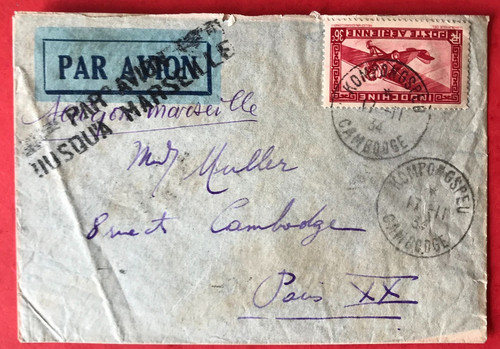 PAR AVION
PAR AVION
JUSQU'A MARSEILLE
Saigon Marseille
36c
POSTE AERIENNE
RF
INDOCHINE
KOMPONGSPEU
11-11
34
CAMBODGE
Muller
8 Cambodge
Paris XX
KOMPONGSPEU
11-11
34
CAMBODGE